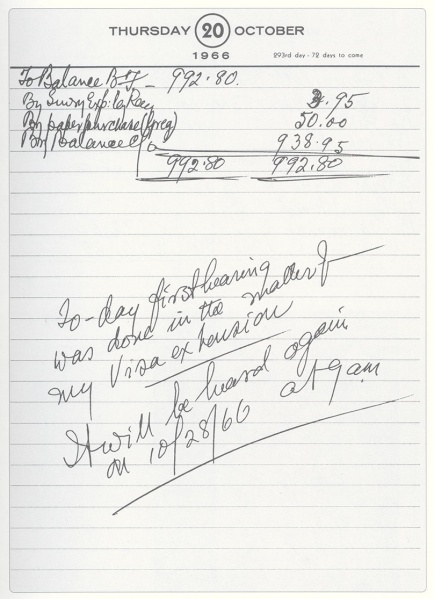 THURSDAY 20 OCTOBER
1966
293rd day - 72 days to come
To Balance B/f - 992.80.
By Sundry Exp: la Ray 3.95
By paper purchase (greg) 50.00
By Balance C/o 938.95
992.80 992.80
To-day first hearing
was done in the matter of
my Visa extension
It will be heard again
on 10/28/66 at 9 am